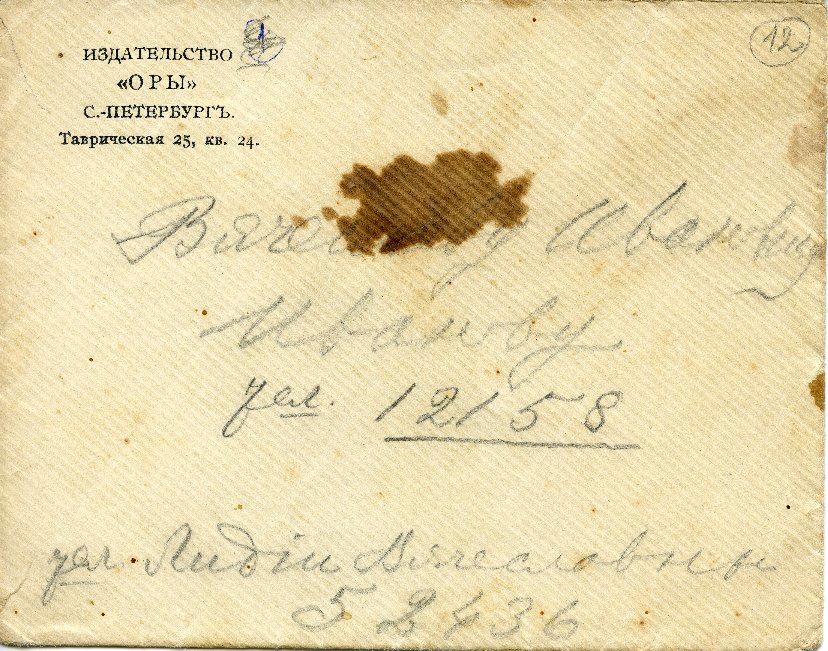 12
ИЗДАТЕЛЬСТВО
«ОРЫ»
С.-ПЕТЕРБУРГЪ.
Таврическая 25, кв. 24.
Вячеславу Ивановичу
Иванову
тел. 12158
тел. Лидіи Вячеславовны
52436